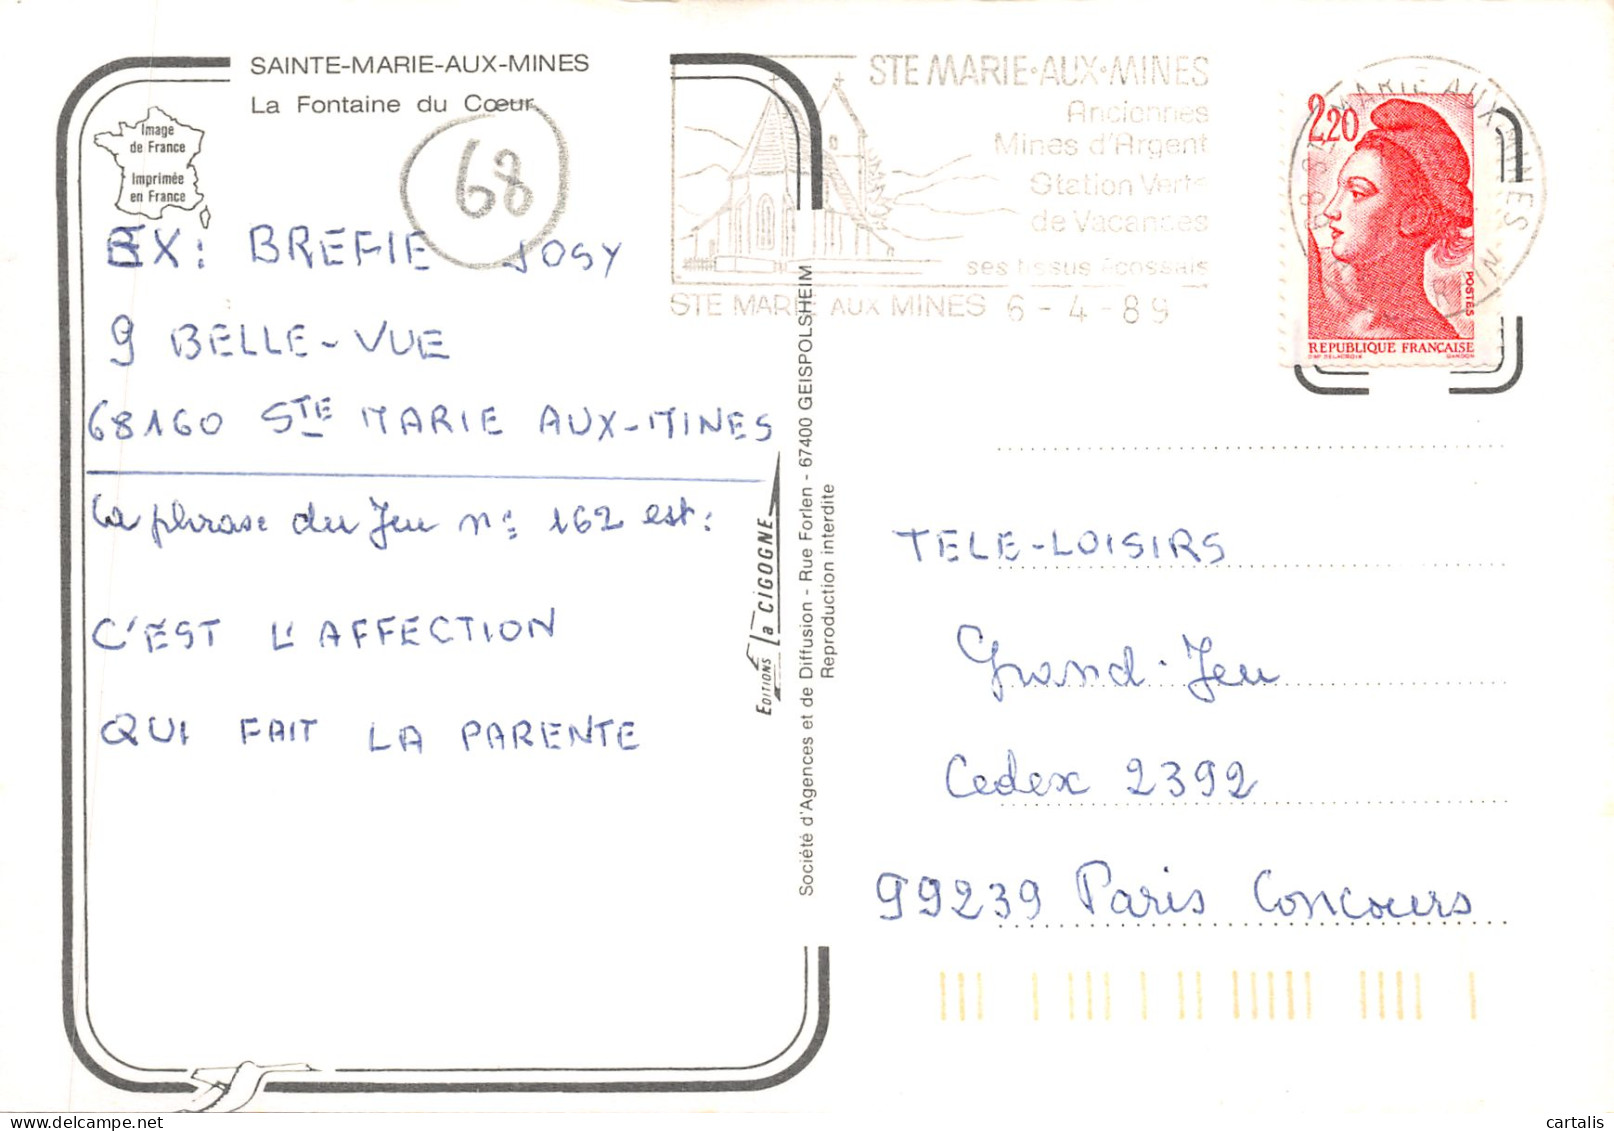 SAINTE-MARIE-AUX-MINES
La Fontaine du Cœur
Image
de France
Imprimée
en France
68
EX: BREFIE JOSY
9 BELLE-VUE
68160 STE MARIE AUX-MINES
La phrase du Jeu n: 162 est:
C'EST L'AFFECTION
QUI FAIT LA PARENTE
STE MARIE-AUX-MINES
Anciennes
Mines d'Argent
Station Verte
de Vacances
ses tissus écossais
STE MARIE AUX MINES 6-4-89
68 STE MARIE AUX MINES
H. RHIN
2,20
POSTES
REPUBLIQUE FRANÇAISE
DAP DELACROIX GANDON
EDITIONS La CIGOGNE
Société d'Agences et de Diffusion - Rue Forlen - 67400 GEISPOLSHEIM
Reproduction interdite
TELE-LOISIRS
Grand-Jeu
Cedex 2392
99239 Paris Concours
cartalis
delcampe.net